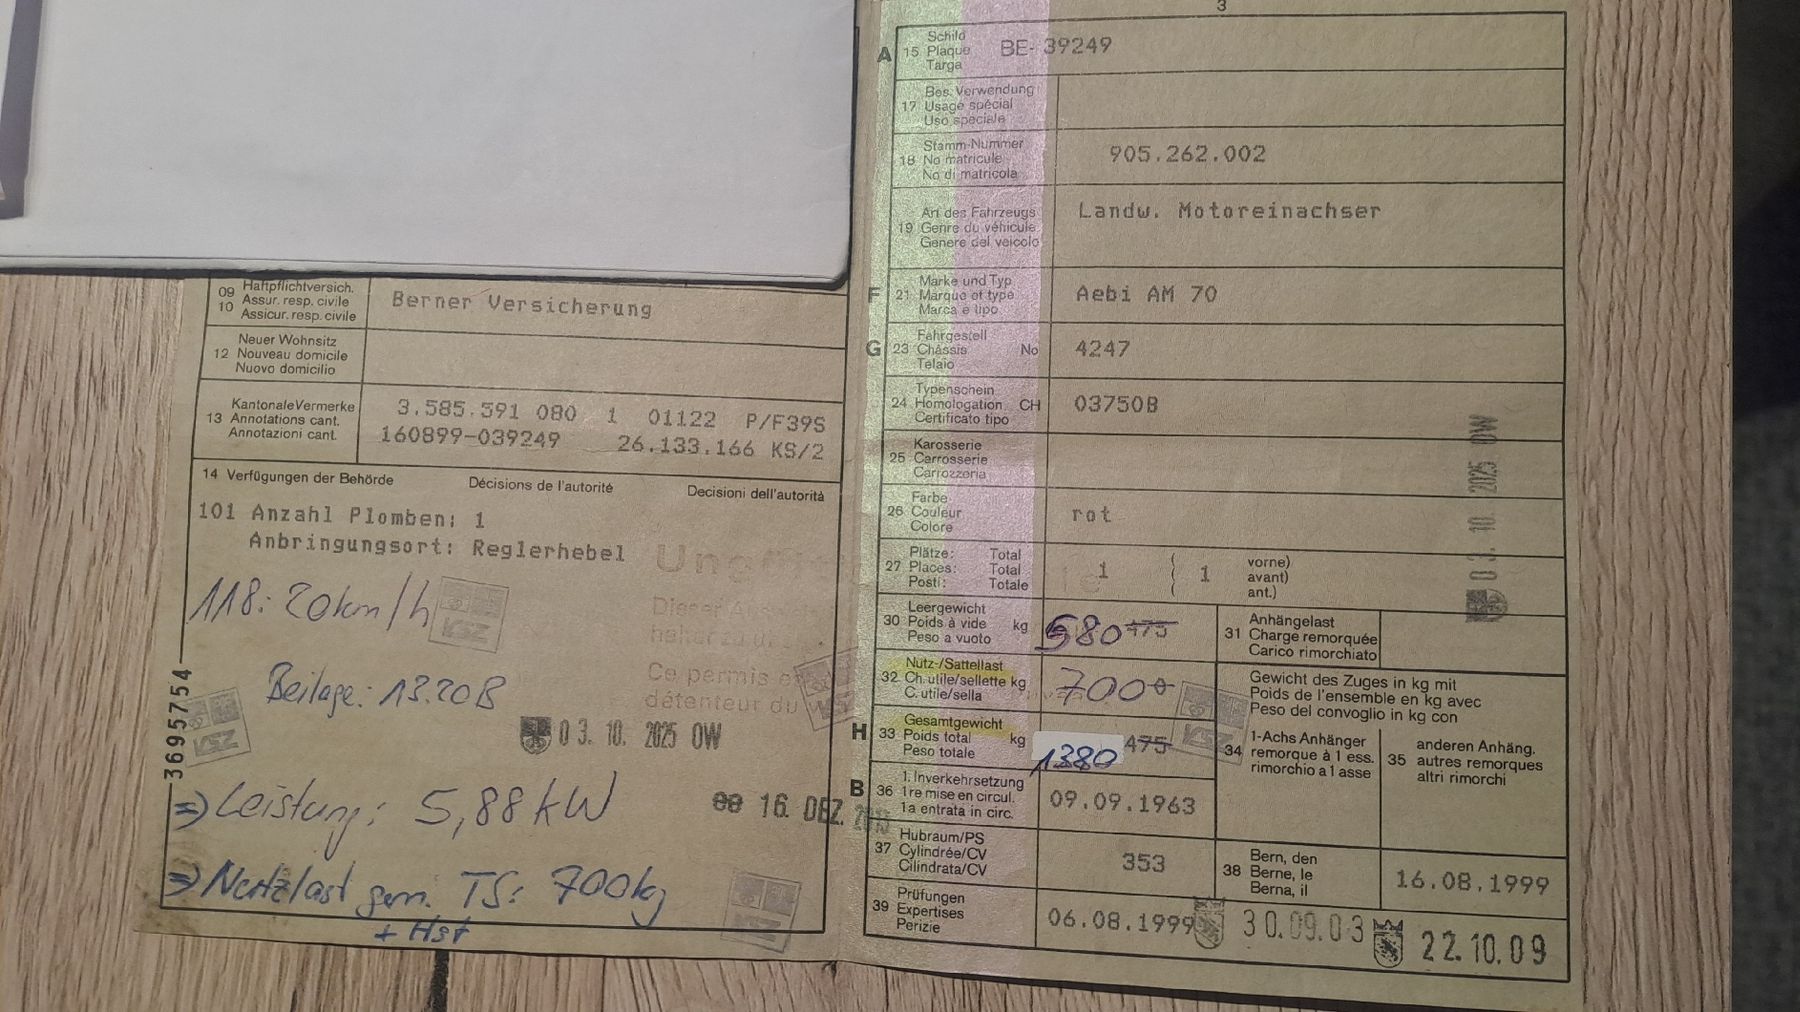 09 Haftpflichtversich.
10 Assur. resp. civile
Assicur. resp. civile
Berner Versicherung
12 Neuer Wohnsitz
Nouveau domicile
Nuovo domicilio
13 Kantonale Vermerke
Annotations cant.
Annotazioni cant.
3.585.591 080 1 01122 P/F39S
160899-039249 26.133.166 KS/2
14 Verfügungen der Behörde Décisions de l'autorité Decisioni dell'autorità
101 Anzahl Plomben: 1
Anbringungsort: Reglerhebel
118: 20km/h
VSZ
Beilage: 13.20B
VSZ
03. 10. 2025 OW
3695754
⇒ Leistung: 5,88kW
16. DEZ.
⇒ Nutzlast gem. TS: 700kg
+ Hst
Dieser
Ce permis
détenteur du
3
A 15 Schild
Plaque
Targa
BE- 39249
17 Bes. Verwendung
Usage spécial
Uso speciale
18 Stamm-Nummer
No matricule
No di matricola
905.262.002
19 Art des Fahrzeugs
Genre du véhicule
Genere del veicolo
Landw. Motoreinachser
F 21 Marke und Typ
Marque et type
Marca e tipo
Aebi AM 70
G 23 Fahrgestell
Châssis No
Telaio
4247
24 Typenschein
Homologation CH
Certificato tipo
03750B
25 Karosserie
Carrosserie
Carrozzeria
26 Farbe
Couleur
Colore
rot
03. 10. 2025 OW
27 Plätze: Total
Places: Total
Posti: Totale
1 ( 1 vorne)
avant)
ant.)
30 Leergewicht
Poids à vide kg
Peso a vuoto
580 475
31 Anhängelast
Charge remorquée
Carico rimorchiato
32 Nutz-/Sattellast
Ch. utile/sellette kg
C. utile/sella
700 0
VSZ
Gewicht des Zuges in kg mit
Poids de l'ensemble en kg avec
Peso del convoglio in kg con
H 33 Gesamtgewicht
Poids total kg
Peso totale
1380 475
34 1-Achs Anhänger
remorque à 1 ess.
rimorchio a 1 asse
35 anderen Anhäng.
autres remorques
altri rimorchi
B 36 1. Inverkehrsetzung
1re mise en circul.
1a entrata in circ.
09.09.1963
37 Hubraum/PS
Cylindrée/CV
Cilindrata/CV
353
38 Bern, den
Berne, le
Berna, il
16.08.1999
39 Prüfungen
Expertises
Perizie
06.08.1999 30.09.03 22.10.09